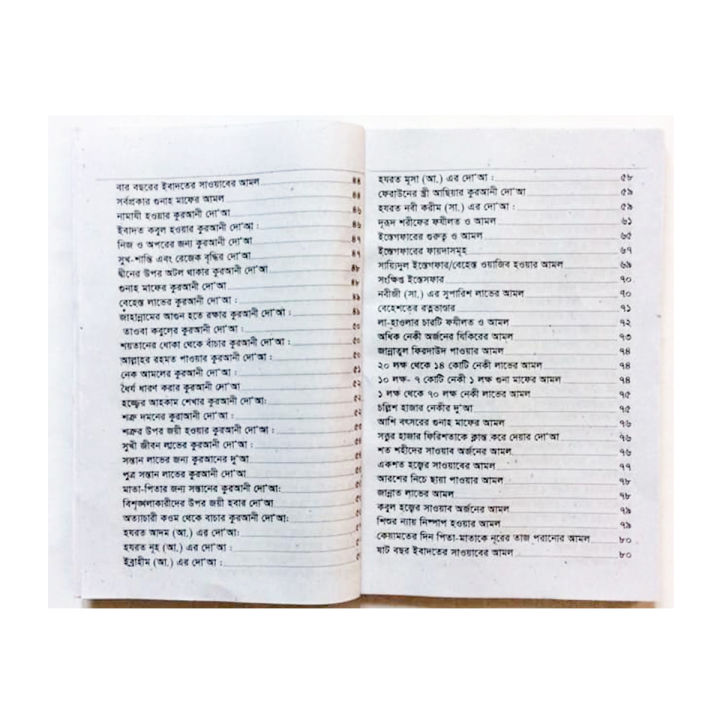 বার বছরের ইবাদতের সাওয়াবের আমল ৪৪
সর্বপ্রকার গুনাহ মাফের আমল ৪৪
নামাযী হওয়ার কুরআনী দো'আ ৪৬
ইবাদত কবুল হওয়ার কুরআনী দো'আ : ৪৬
নিজ ও অপরের জন্য কুরআনী দো'আ ৪৭
সুখ-শান্তি এবং রেজেক বৃদ্ধির দো'আ ৪৭
দ্বীনের উপর অটল থাকার কুরআনী দো'আ ৪৮
গুনাহ মাফের কুরআনী দো'আ ৪৮
বেহেস্ত লাভের কুরআনী দো'আ : ৪৯
জাহান্নামের আগুন হতে রক্ষার কুরআনী দো'আ : ৪৯
তাওবা কবুলের কুরআনী দো'আ : ৫০
শয়তানের ধোকা থেকে বাঁচার কুরআনী দো'আ : ৫০
আল্লাহর রহমত পাওয়ার কুরআনী দো'আ : ৫০
নেক আমলের কুরআনী দো'আ : ৫১
ধৈর্য ধারণ করার কুরআনী দো'আ ৫২
হজ্জের আহকাম শেখার কুরআনী দো'আ: ৫২
শত্রু দমনের কুরাআনী দো'আ : ৫২
শত্রুর উপর জয়ী হওয়ার কুরআনী দো'আ :
সুখী জীবন লাভের কুরআনী দো'আ :
সন্তান লাভের জন্য কুরআনের দু'আ
পুত্র সন্তান লাভের কুরআনী দো'আ
মাতা-পিতার জন্য সন্তানের কুরআনী দো'আ:
বিশৃঙ্খলাকারীদের উপর জয়ী হবার দো'আ
অত্যাচারী কওম থেকে বাচার কুরআনী দো'আ:
হযরত আদম (আ.) এর দো'আ:
হযরত নূহ (আ.) এর দো'আ :
ইব্রাহীম (আ.) এর দো'আ :
হযরত মূসা (আ.) এর দো'আ : ৫৮
ফেরাউনের স্ত্রী আছিয়ার কুরআনী দো'আ ৫৯
হযরত নবী করীম (সা.) এর দো'আ : ৫৯
দুরূদ শরীফের ফযীলত ও আমল ৬১
ইস্তেগফারের গুরুত্ব ও আমল ৬৫
ইস্তেগফারের ফায়দাসমূহ ৬৭
সায়্যিদুল ইস্তেগফার/বেহেস্ত ওয়াজিব হওয়ার আমল ৬৯
সংক্ষিপ্ত ইস্তেসফার ৭০
নবীজী (সা.) এর সুপারিশ লাভের আমল ৭০
বেহেশতের রত্নভাণ্ডার ৭১
লা-হাওলার চারটি ফযীলত ও আমল ৭২
অধিক নেকী অর্জনের যিকিরের আমল ৭৩
জান্নাতুল ফিরদাউদ পাওয়ার আমল ৭৪
২০ লক্ষ থেকে ১৪ কোটি নেকী লাভের আমল ৭৪
১০ লক্ষ- ৭ কোটি নেকী ১ লক্ষ গুনা মাফের আমল ৭৪
১ লক্ষ থেকে ৭০ লক্ষ নেকী লাভের আমল ৭৫
চল্লিশ হাজার নেকীর দু'আ ৭৫
আশি বৎসরের গুনাহ মাফের আমল ৭৬
সত্তুর হাজার ফিরিশতাকে ক্লান্ত করে দেয়ার দো'আ ৭৬
শত শহীদের সাওয়াব অর্জনের আমল ৭৬
একশত হজ্বের সাওয়াবের আমল ৭৭
আরশের নিচে ছায়া পাওয়ার আমল ৭৮
জান্নাত লাভের আমল ৭৮
কবুল হজ্বের সাওয়াব অর্জনের আমল ৭৯
শিশুর ন্যায় নিষ্পাপ হওয়ার আমল ৭৯
কেয়ামতের দিন পিতা-মাতাকে নূরের তাজ পরানোর আমল ৮০
ষাট বছর ইবাদতের সাওয়াবের আমল ৮০